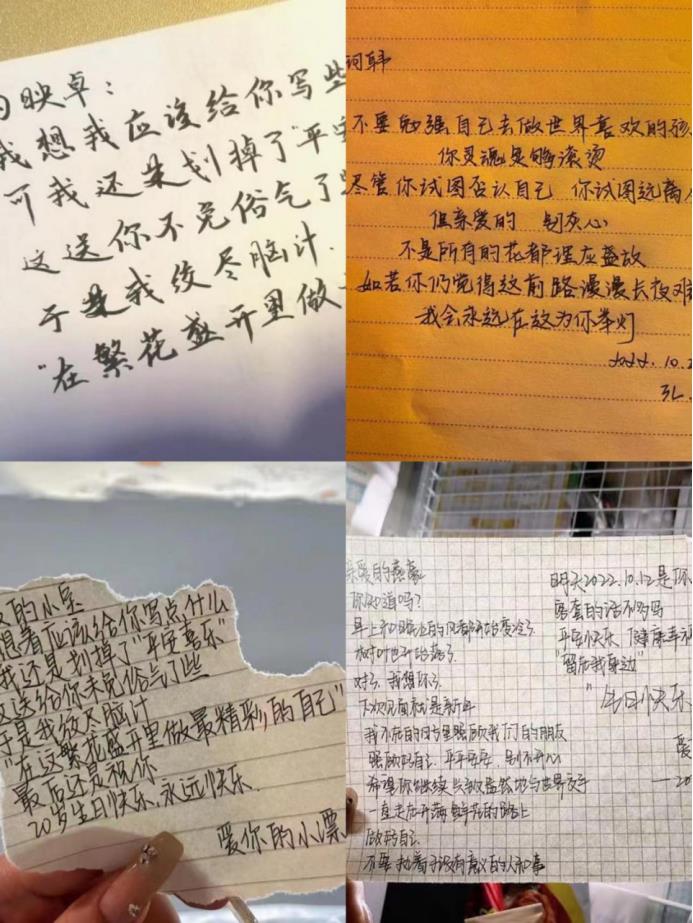 映卓：
我想我应该给你写些
可我还是划掉了"平安
这送你不免俗气了些
于是我绞尽脑汁.
"在繁花盛开里做
珂韩
不要勉强自己去做世界喜欢的孩
你灵魂足够滚烫
尽管你试图否认自己 你试图远离人
但亲爱的 别灰心
不是所有的花都理应盛放
如若你仍觉得这前路漫漫长夜难
我会永远在这为你举灯
10.2
的小宝
想着应该给你写点什么
我还是划掉了"平安喜乐"
送给你未免俗气了些
于是我绞尽脑汁
"在这繁花盛开里做最精彩的自己"
最后还是祝你
20岁生日快乐、永远快乐
爱你的小漂
亲爱的
你知道吗?
早上和晚上的风都开始变冷了
树叶也开始落了
对了、我想你了
下次见面就是新年
我不在的日子里照顾我们的朋友
照顾好自己、平平安安、别不开心
希望你继续长成盛然地与世界交手
一直走在开满鲜花的路上
做好自己
不要执着于没有意义的人和事
明天2022.10.12是你
客套的话不多写
平安快乐 健康幸福
"留在我身边"
"生日快乐
爱
—20